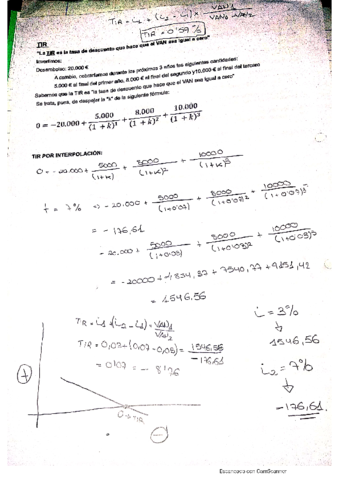 TIR = L2 + (L2 - L1) x VAN1
TIR = 0'59%
TIR
"La TIR es la tasa de descuento que hace que el VAN sea igual a cero"
Invertimos:
Desembolso: 20.000 €
A cambio, obtendríamos durante los próximos 3 años las siguientes cantidades:
5.000 € al final del primer año, 8.000 € al final del segundo y 10.000 € al final del tercero
Sabemos que la TIR es "la tasa de descuento que hace que el VAN sea igual a cero"
Se trata, pues, de despejar la "k" de la siguiente fórmula:
0 = -20.000 + 5.000/(1 + k)¹ + 8.000/(1 + k)² + 10.000/(1 + k)³
TIR POR INTERPOLACIÓN:
0 = -20.000 + 5000/(1+k) + 8000/(1+k)² + 10000/(1+k)³
i = 7% => -20.000 + 5000/(1+0'07) + 8000/(1+0'07)² + 10000/(1+0'07)³
= -176,61
-20.000 + 5000/(1+0'03) + 8000/(1+0'03)² + 10000/(1+0'03)³
= -20000 + 4854,37 + 7540,77 + 9151,42
= 1546,56
TIR = i1 + (i2 - i1) = VAN1/VAN2
TIR = 0,03 + (0,07 - 0,03) = 1546,56/-176,61
= 0'07 = - 8'76
i = 3%
1546,56
i2 = 7%
-176,61
+
TIR
-
Escaneado con CamScanner